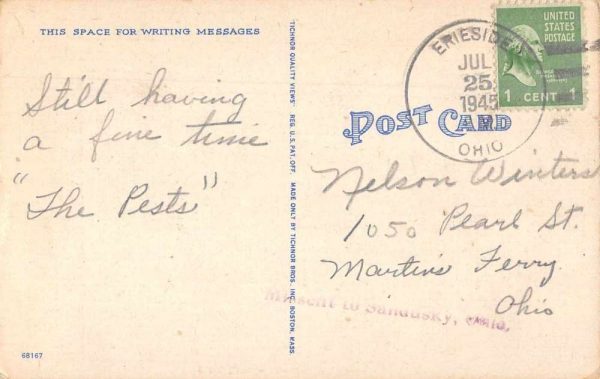 THIS SPACE FOR WRITING MESSAGES
Still having
a fine time
"The Pests"
68167
TICHNOR QUALITY VIEWS REG. U.S. PAT. OFF. MADE ONLY BY TICHNOR BROS. INC. BOSTON, MASS.
ERIESIDE
JUL
25
1945
OHIO
UNITED
STATES
POSTAGE
1 CENT 1
POST CARD
Nelson Winters
1050 Pearl St.
Martins Ferry
Ohio
Missent to Sandusky, Ohio,